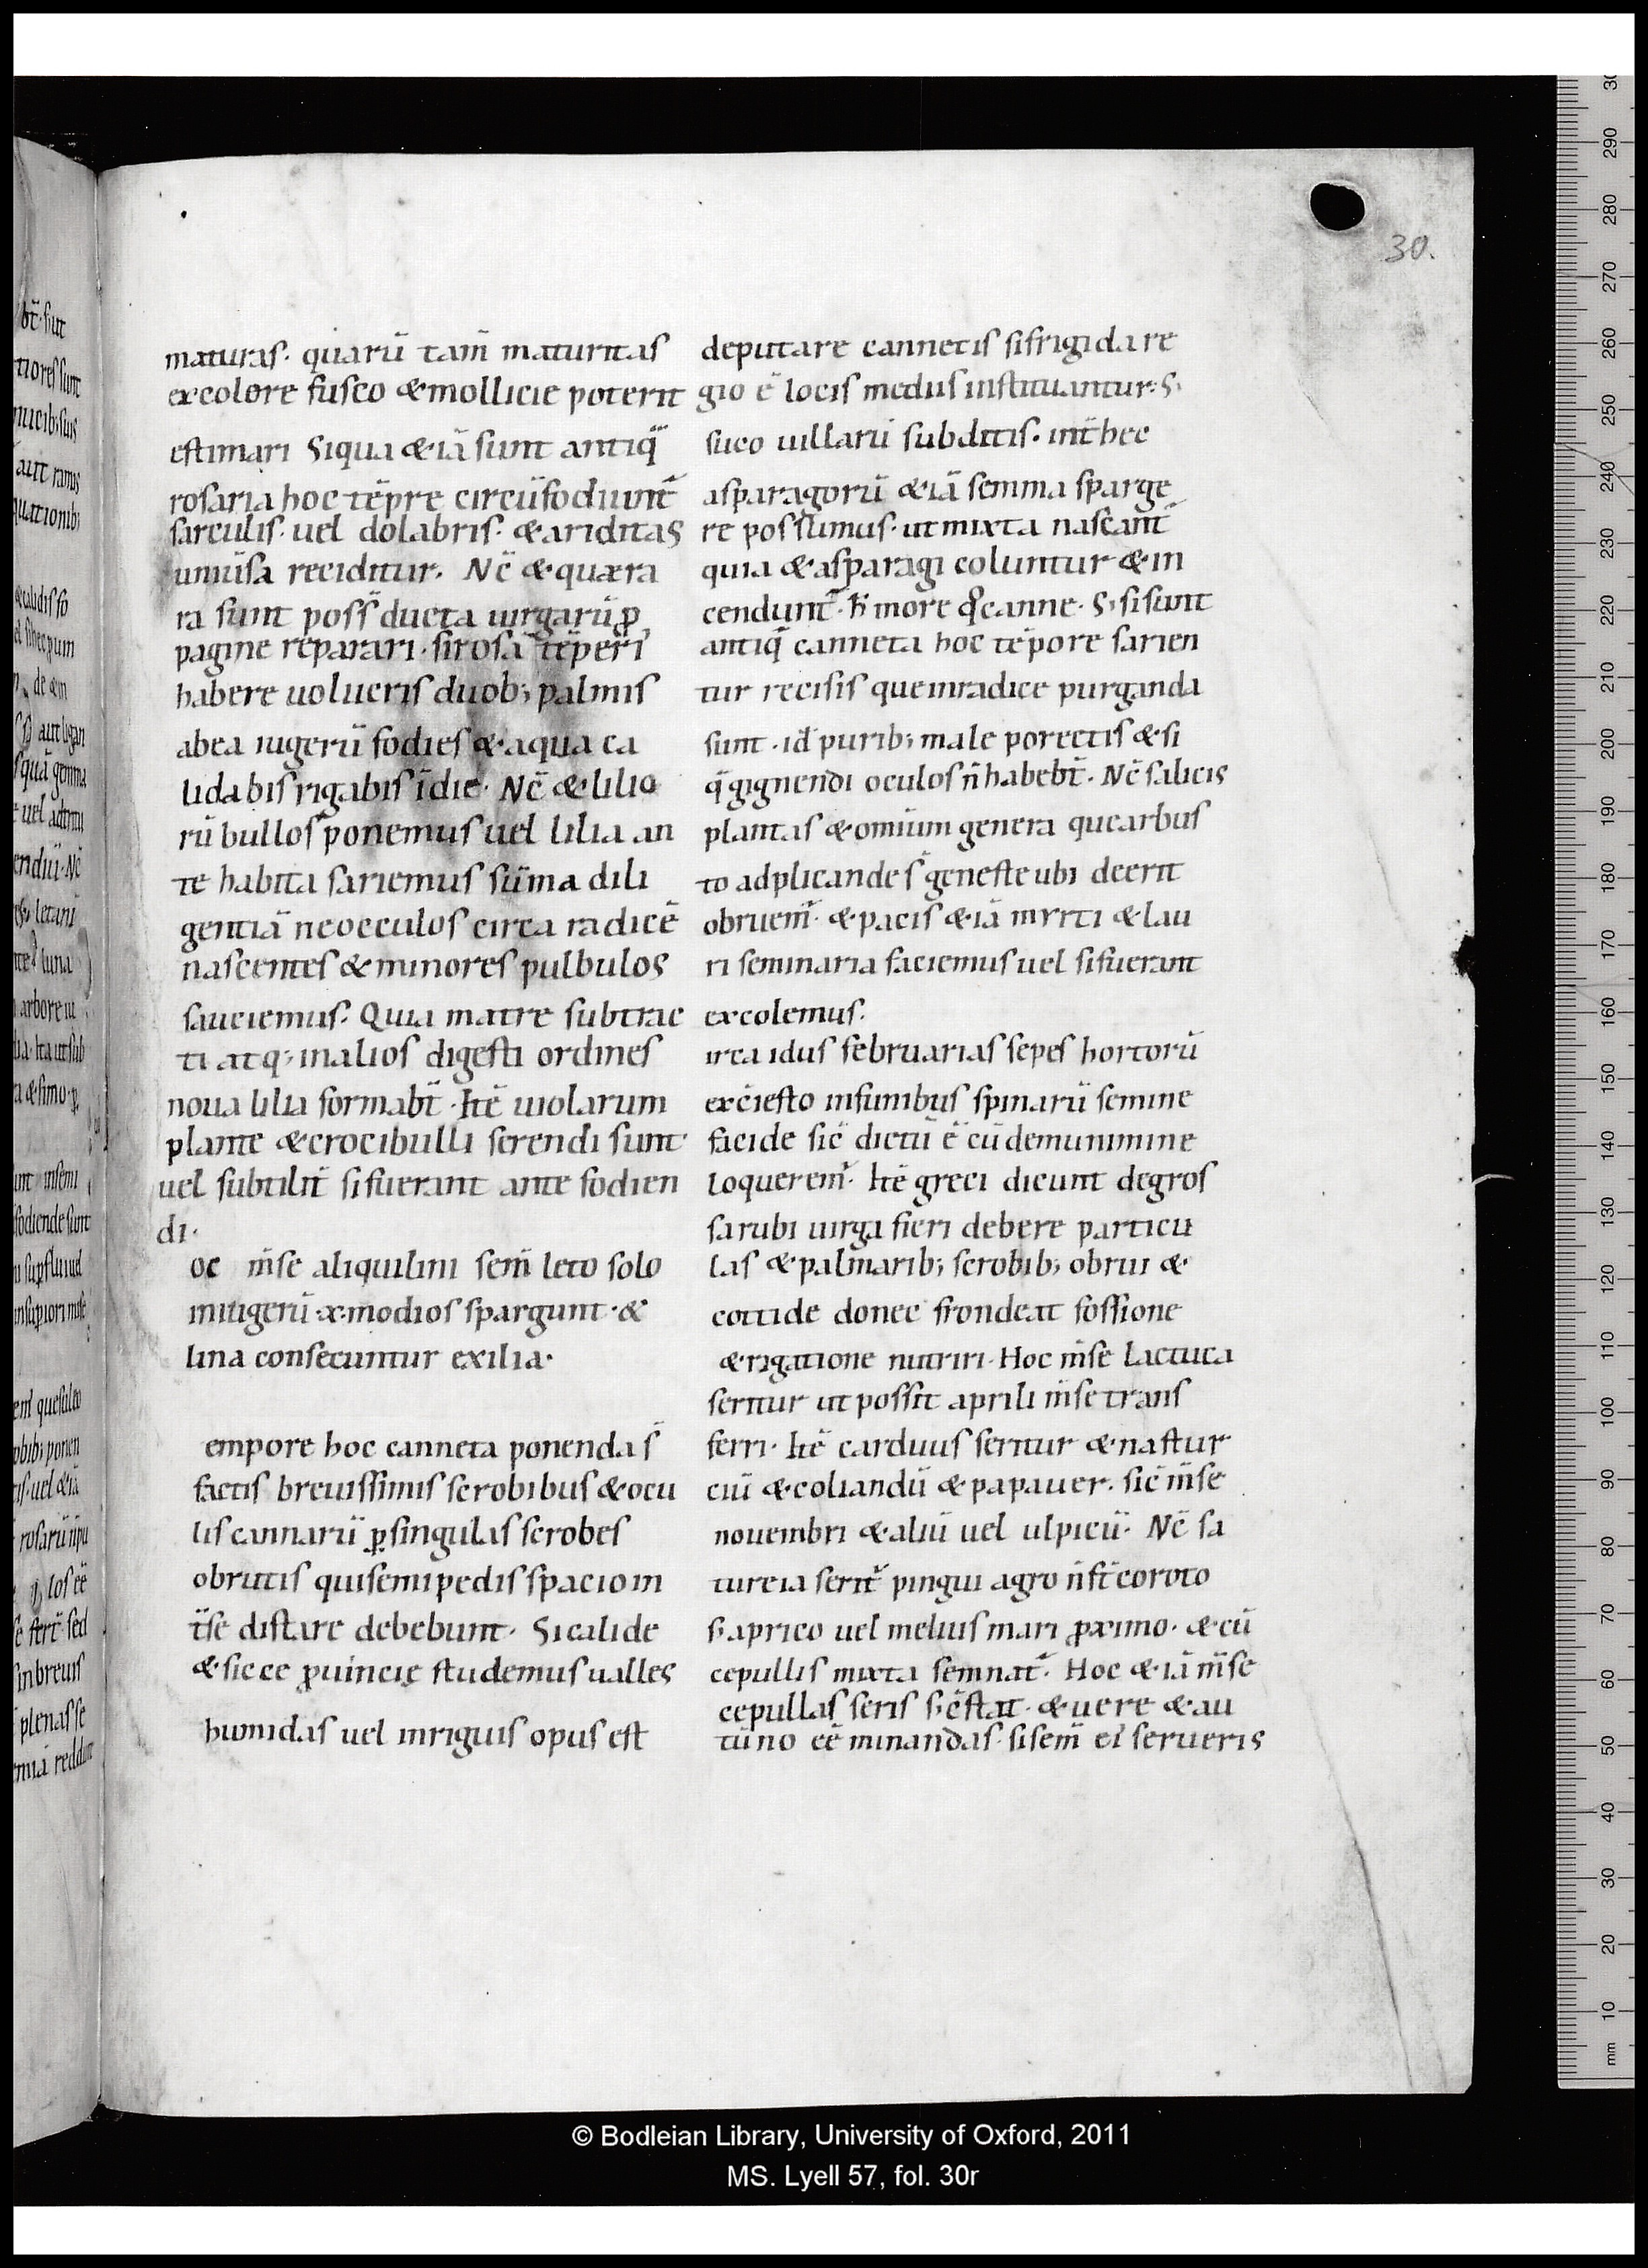 30.
maturas· quarū tam̄ maturitas
excolore fusco & mollicie poterit
estimari Siqua & iā sunt antiq̄
rosaria hoc tēpre circūfodiunt̄
sarculis· uel dolabris· & ariditas
uniūsa reciditur. Nc̄ & quæra
ra sunt poss̄ ducta uirgarū ꝓ
pagine reparari· si rosā tēperi
habere uolueris duob; palmis
abea iugerū fodies & aqua ca
lida bis rigabis īdie· Nc̄ & lilio
rū bullos ponemus uel lilia an
te habita sariemus sūma dili
gentiā neocculos circa radicē
nascentes & minores pulbulos
sauciemus· Quia matre subtrac
ti atq; inalios digesti ordines
noua lilia formabt̄· Itē uiolarum
plante & crocibulli serendi sunt·
uel subtilit̄ sifuerant ante fodien
di·
oc m̄se aliquilini sem̄ leto solo
miugerū ·x· modios spargunt·&
lina consecuntur exilia·
empore hoc canneta ponenda s̄
factis breuissimis scrobibus & ocu
lis cannarū ꝑ singulas scrobes
obrutis quisemipedis spacio in
t̄se distare debebunt· Sicalide
& sicce ꝓuincię studemus ualles
humidas uel inriguis opus est
deputare cannetis sifrigida re
gio ē locis mediis instituantur· S;
suco uillarū subditis· int̄ hec
asparagorū & iā semina sparge
re possumus· ut mixta nascant̄
quia & asparagi coluntur & in
cendunt̄· h̄ more q̊ canne· S; si sunt
antiq̄ canneta hoc tēpore sarien
tur recisis que inradice purganda
sunt· id̄ purib; male porectis & si
q̄ gignendi oculos n̄ habebt̄· Nc̄ salicis
plantas & omium genera quearbus
to adplicande s̄ geneste ubi deerit
obruem̄· & pacis & iā mirti & lau
ri seminaria faciemus uel sifuerant
excolemus·
irca idus februarias sepes hortorū
exc̄iesto infunibus spinarū semine
facide sic̄ dictū ē cū demunimine
loquerem̄· Itē greci dicunt degros
sa rubi uirga fieri debere particu
las & palmarib; scrobib; obrui &
cottide donec frondeat fossione
& rigatione nutriri· Hoc m̄se Lactuca
seritur ut possit aprili m̄se trans
ferri· Itē carduus seritur & nastur
ciū & coliandū & papauer· sic̄ m̄se
nouembri & aliū uel ulpicū· Nc̄ sa
tureia serit̄ pingui agro n̄ st̄coroto
s; aprico uel melius mari ꝓximo· & cū
cepullis mixta seminat̄· Hoc & iā m̄se
cepullas seris s; ēstat· & uere & au
tūno eē minandas· si sem̄ ei serueris
© Bodleian Library, University of Oxford, 2011
MS. Lyell 57, fol. 30r